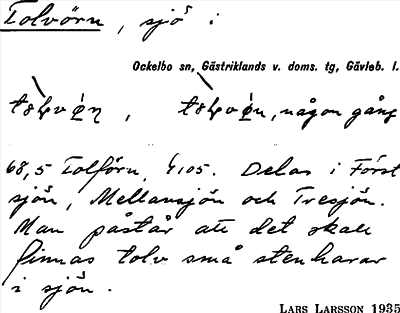 Tolvörn, sjö i
Ockelbo sn, Gästriklands v. doms. tg, Gävleb. l.
någon gång
68,5 Tolförn, 4105. Delas i Först
sjön, Mellansjön och Tresjön.
Man påstår att det skall
finnas tolv små stenharar
i sjön.
LARS LARSSON 1935